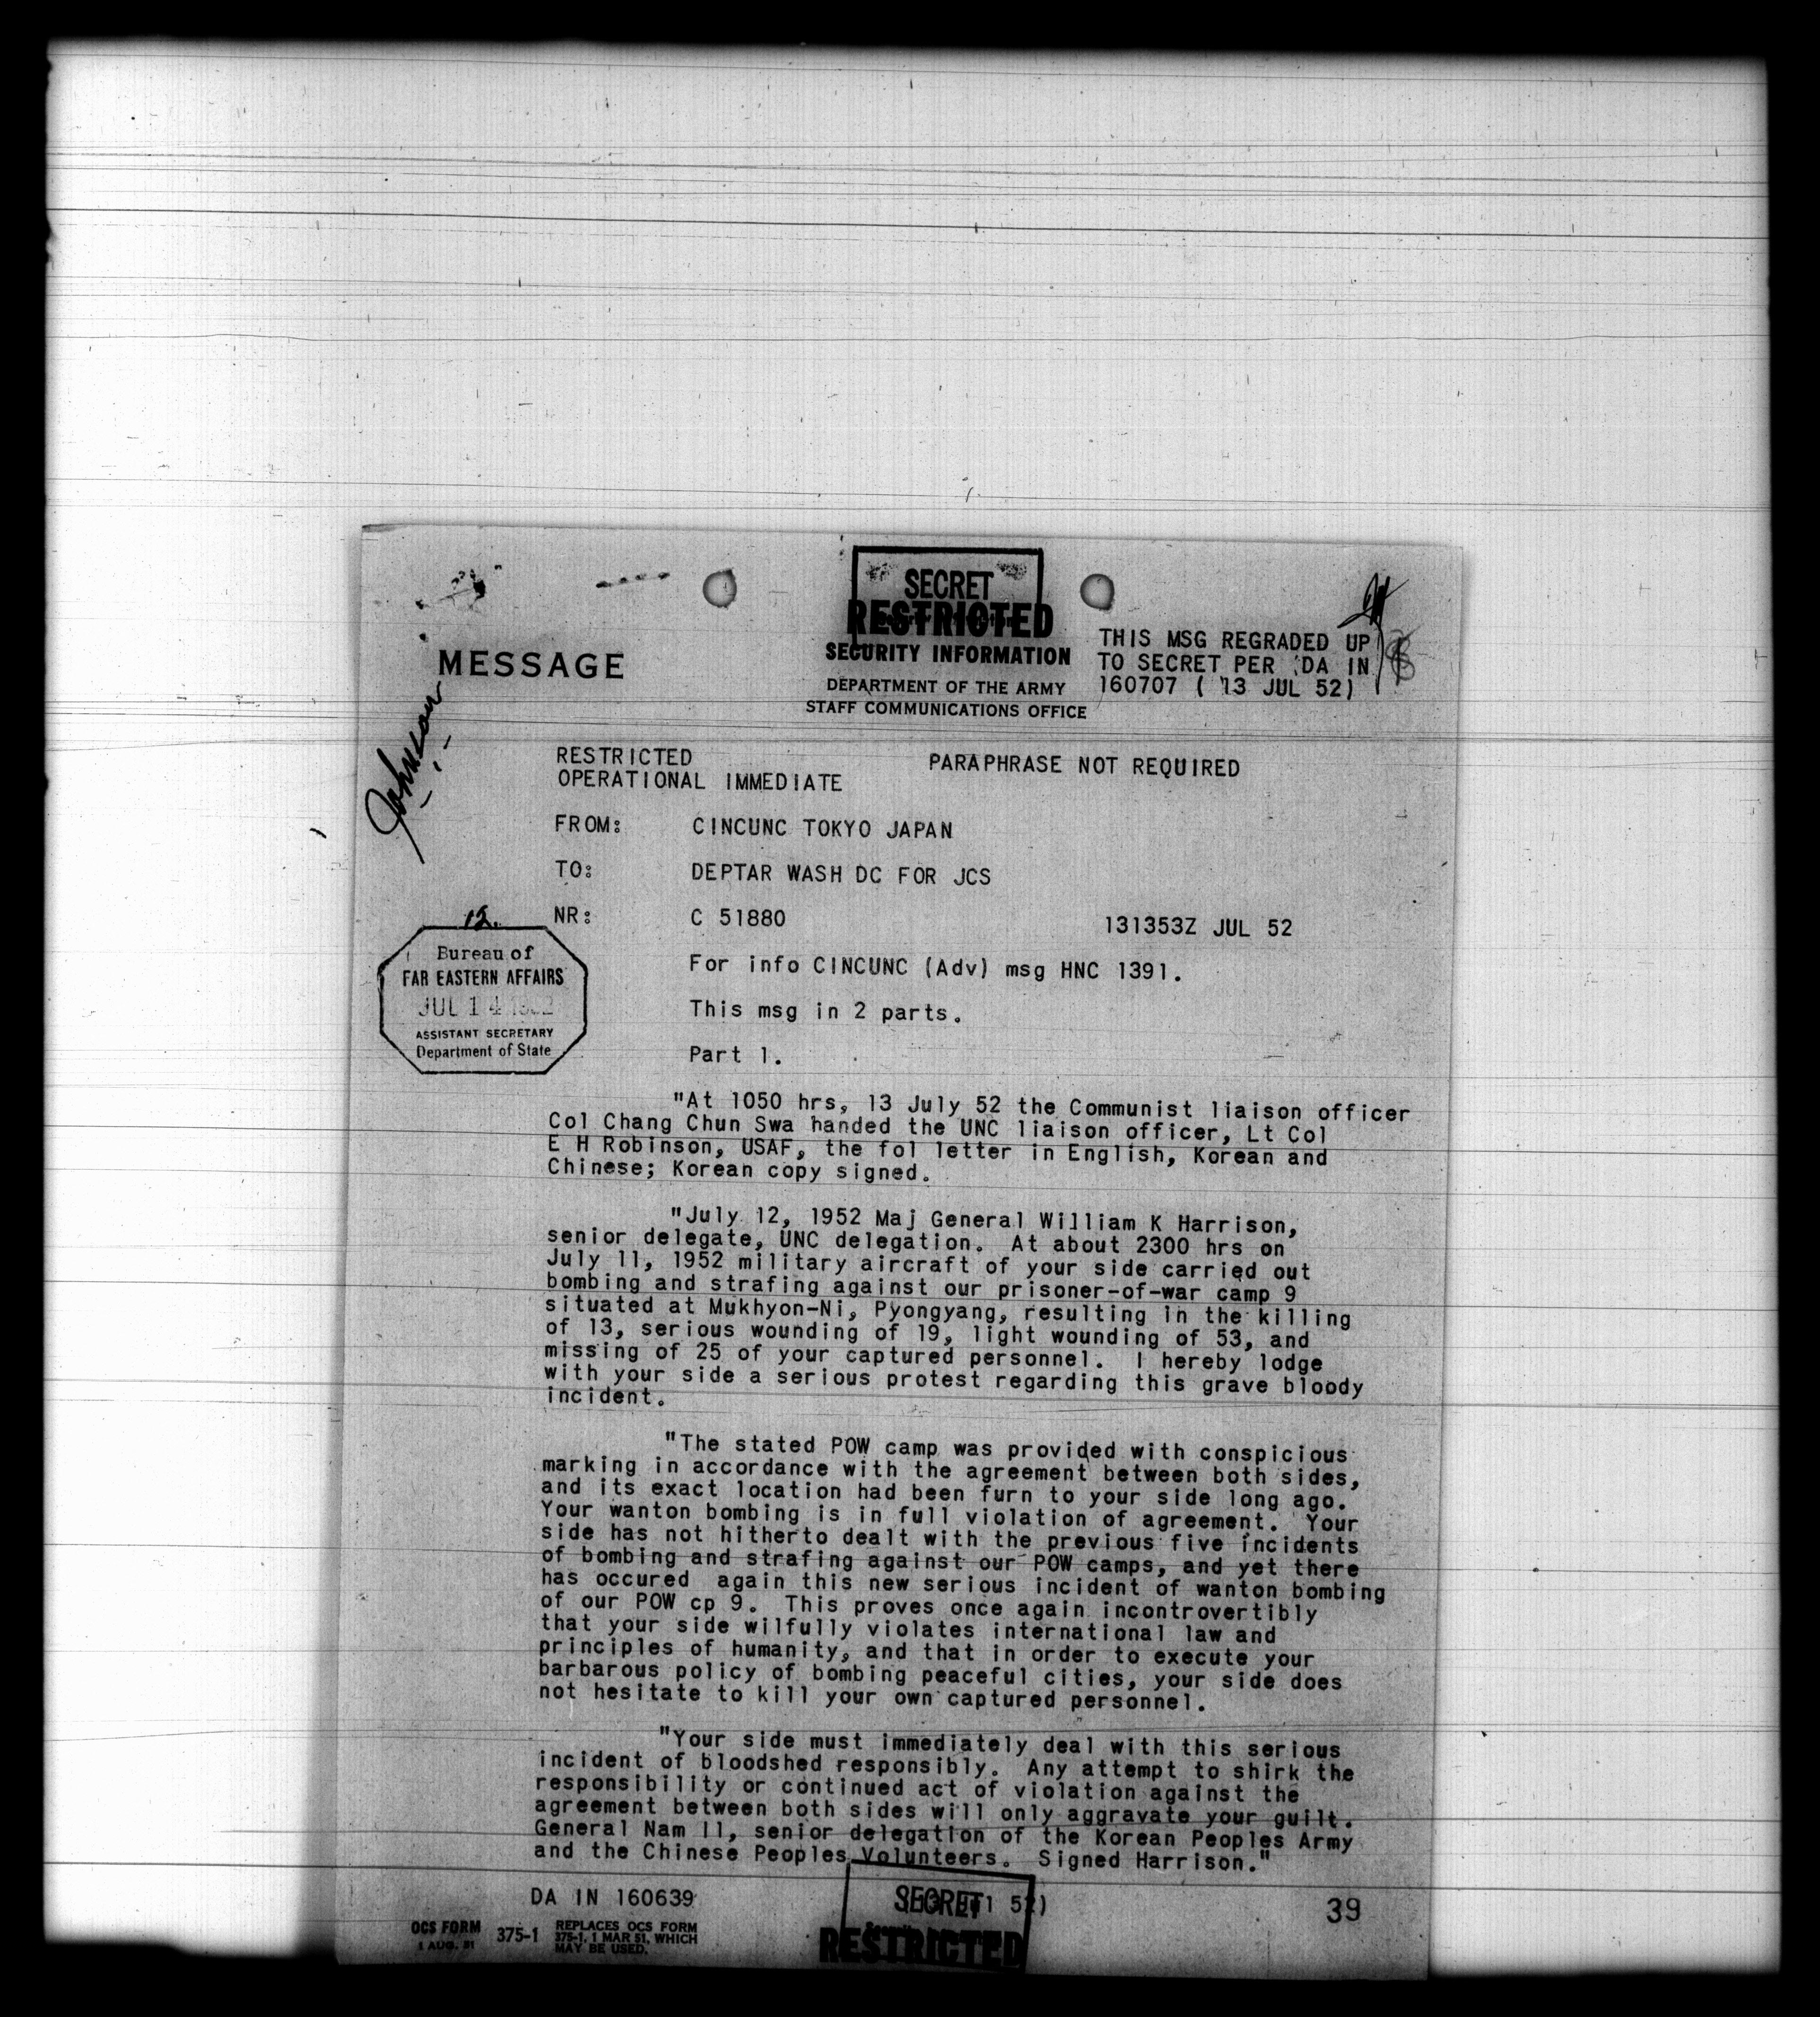 SECRET
RESTRICTED
SECURITY INFORMATION
MESSAGE
DEPARTMENT OF THE ARMY
STAFF COMMUNICATIONS OFFICE
THIS MSG REGRADED UP
TO SECRET PER DA IN
160707 ( 13 JUL 52)
Johnson
RESTRICTED PARAPHRASE NOT REQUIRED
OPERATIONAL IMMEDIATE
FROM: CINCUNC TOKYO JAPAN
TO: DEPTAR WASH DC FOR JCS
NR: C 51880 131353Z JUL 52
12.
Bureau of
FAR EASTERN AFFAIRS
JUL 14 1952
ASSISTANT SECRETARY
Department of State
For info CINCUNC (Adv) msg HNC 1391.
This msg in 2 parts.
Part 1.
"At 1050 hrs, 13 July 52 the Communist liaison officer
Col Chang Chun Swa handed the UNC liaison officer, Lt Col
E H Robinson, USAF, the fol letter in English, Korean and
Chinese; Korean copy signed.
"July 12, 1952 Maj General William K Harrison,
senior delegate, UNC delegation. At about 2300 hrs on
July 11, 1952 military aircraft of your side carried out
bombing and strafing against our prisoner-of-war camp 9
situated at Mukhyon-Ni, Pyongyang, resulting in the killing
of 13, serious wounding of 19, light wounding of 53, and
missing of 25 of your captured personnel. I hereby lodge
with your side a serious protest regarding this grave bloody
incident.
"The stated POW camp was provided with conspicious
marking in accordance with the agreement between both sides,
and its exact location had been furn to your side long ago.
Your wanton bombing is in full violation of agreement. Your
side has not hitherto dealt with the previous five incidents
of bombing and strafing against our POW camps, and yet there
has occured again this new serious incident of wanton bombing
of our POW cp 9. This proves once again incontrovertibly
that your side wilfully violates international law and
principles of humanity, and that in order to execute your
barbarous policy of bombing peaceful cities, your side does
not hesitate to kill your own captured personnel.
"Your side must immediately deal with this serious
incident of bloodshed responsibly. Any attempt to shirk the
responsibility or continued act of violation against the
agreement between both sides will only aggravate your guilt.
General Nam Il, senior delegation of the Korean Peoples Army
and the Chinese Peoples Volunteers. Signed Harrison."
DA IN 160639 52) 39
SECRET
RESTRICTED
OCS FORM 375-1 REPLACES OCS FORM
1 AUG. 51 375-1, 1 MAR 51, WHICH
MAY BE USED.